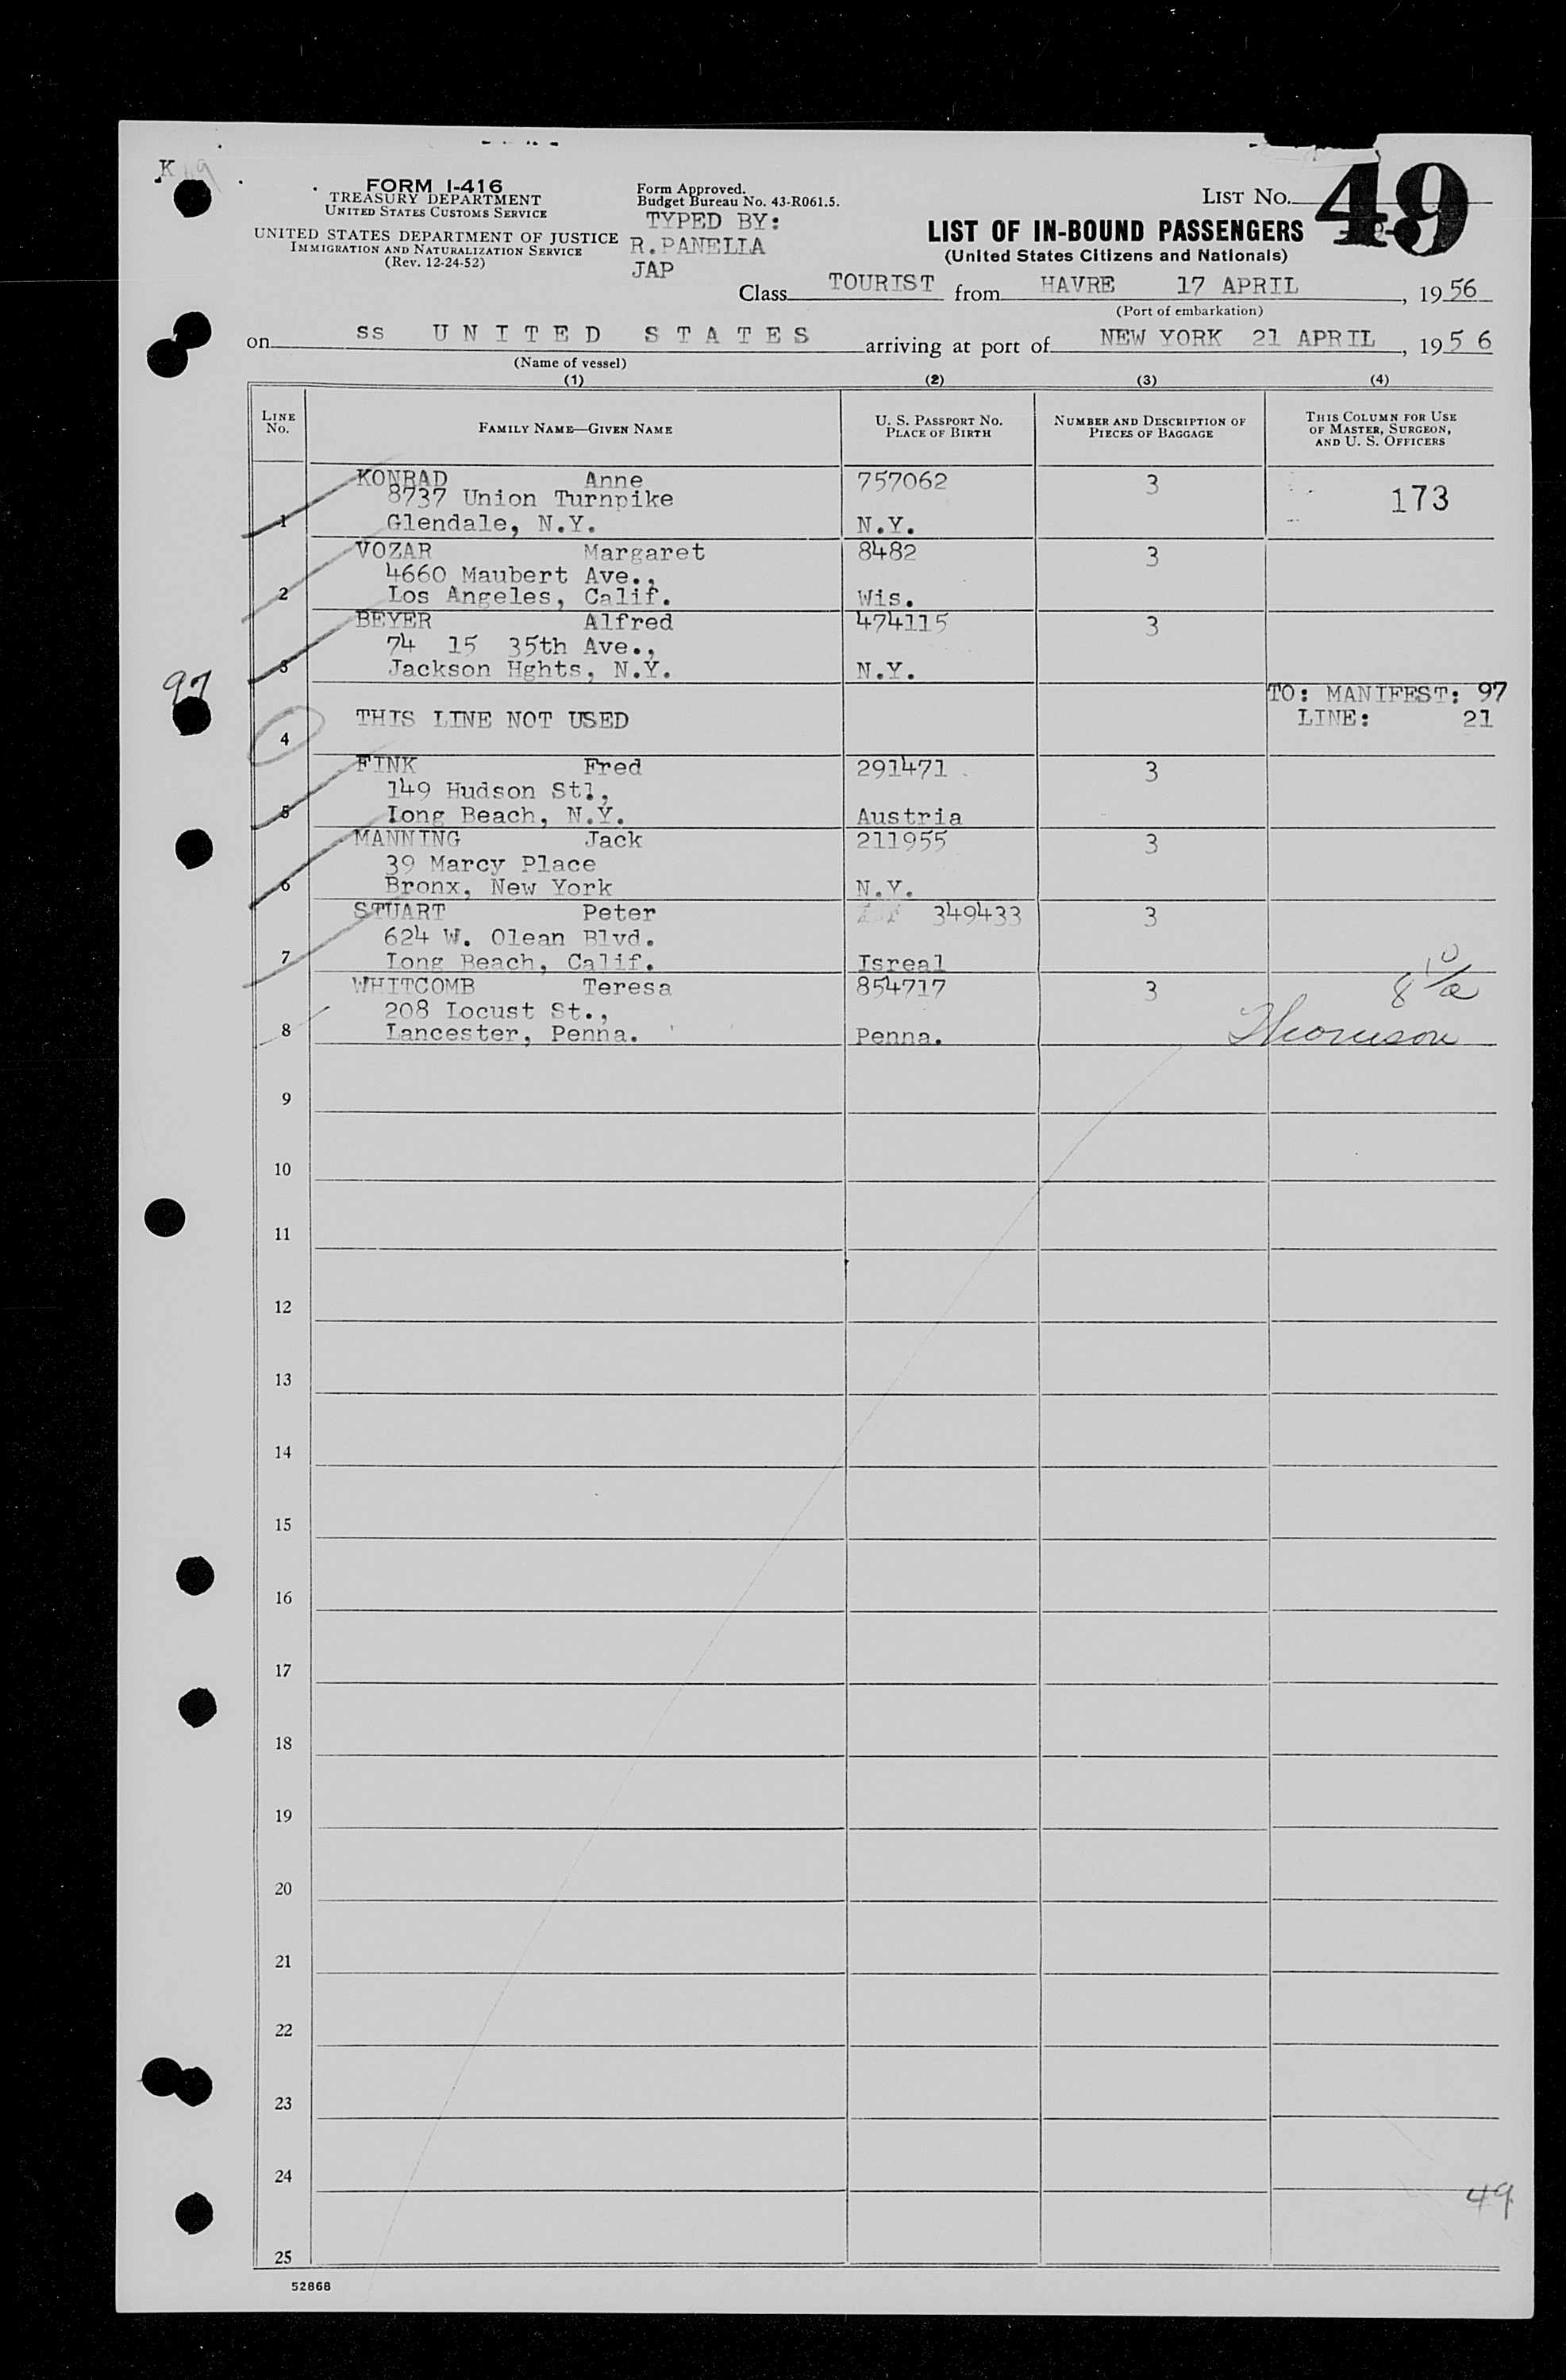 K 19
FORM I-416
TREASURY DEPARTMENT
UNITED STATES CUSTOMS SERVICE
UNITED STATES DEPARTMENT OF JUSTICE
IMMIGRATION AND NATURALIZATION SERVICE
(Rev. 12-24-52)
Form Approved.
Budget Bureau No. 43-R061.5.
TYPED BY:
R.PANELLA
JAP
LIST NO. 49
LIST OF IN-BOUND PASSENGERS
(United States Citizens and Nationals)
Class TOURIST from HAVRE 17 APRIL, 1956
(Port of embarkation)
on ss UNITED STATES arriving at port of NEW YORK 21 APRIL, 195 6
(Name of vessel)
(1) (2) (3) (4)
LINE NO. FAMILY NAME—GIVEN NAME U. S. PASSPORT NO. PLACE OF BIRTH NUMBER AND DESCRIPTION OF PIECES OF BAGGAGE THIS COLUMN FOR USE OF MASTER, SURGEON, AND U. S. OFFICERS
KONRAD Anne 757062 3 173
8737 Union Turnpike
1 Glendale, N.Y. N.Y.
VOZAR Margaret 8482 3
4660 Maubert Ave.,
2 Los Angeles, Calif. Wis.
BEYER Alfred 474115 3
74 15 35th Ave.,
3 Jackson Hghts, N.Y. N.Y.
97
TO: MANIFEST: 97
4 THIS LINE NOT USED LINE: 21
FINK Fred 291471 3
149 Hudson Stl,
5 Long Beach, N.Y. Austria
MANNING Jack 211955 3
39 Marcy Place
6 Bronx, New York N.Y.
STUART Peter 349433 3
624 W. Olean Blvd.
7 Long Beach, Calif. Isreal
WHITCOMB Teresa 854717 3
208 Locust St.,
8 Lancester, Penna. Penna.
9
10
11
12
13
14
15
16
17
18
19
20
21
22
23
24
49
25
52868